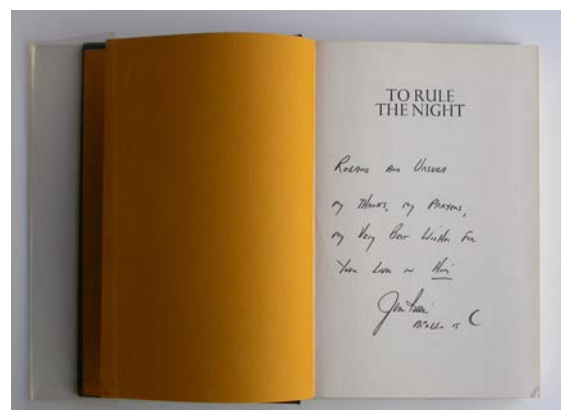 TO RULE
THE NIGHT
Roland and Ursula
my Thanks, my Prayers,
my Very Best Wishes For
Your Lives in Him
Jim Irwin
Apollo 15